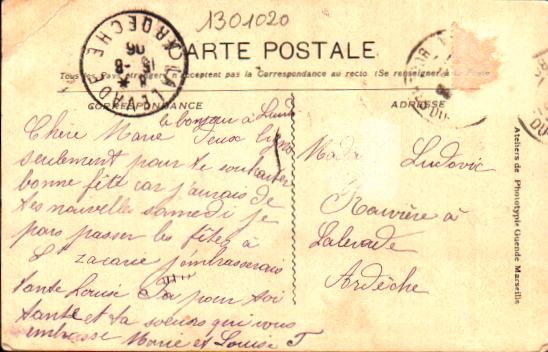 1301020
CARTE POSTALE
Tous les pays étrangers n'acceptent pas la Correspondance au recto. (Se renseigner à la Poste
CORRESPONDANCE
ADRESSE
LALEVADE
ARDECHE
15 -8
06
le bonjour à
Chère Marie Deux lignes
seulement pour te souhaiter
bonne fête car j'aurais de
tes nouvelles samedi je
pars passer les fêtes à
St j'embrasserais
tante Louise pour toi
santé et ta soeurs qui vous
embrasse Marie et Louise F
Mada Ludovic
à
Lalevade
Ardèche
Ateliers de Phototypie Guende Marseille